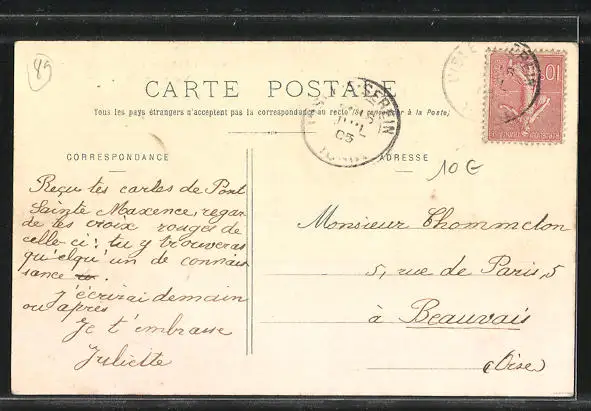 89
CARTE POSTALE
Tous les pays étrangers n'acceptent pas la correspondance au recto (se renseigner à la Poste)
CORRESPONDANCE
ADRESSE
10 €
Reçu tes cartes de Pont
Sainte Maxence, regar
de les croix rouges de
celle-ci; tu y trouveras
qu'elqu'un de connais
sance.
j'écrirai demain
ou après
Je t'embrasse
Juliette
Monsieur Thommelon
5, rue de Paris, 5
à Beauvais
(Oise)
SEREIN
JUIL
05
L'ISLE
10